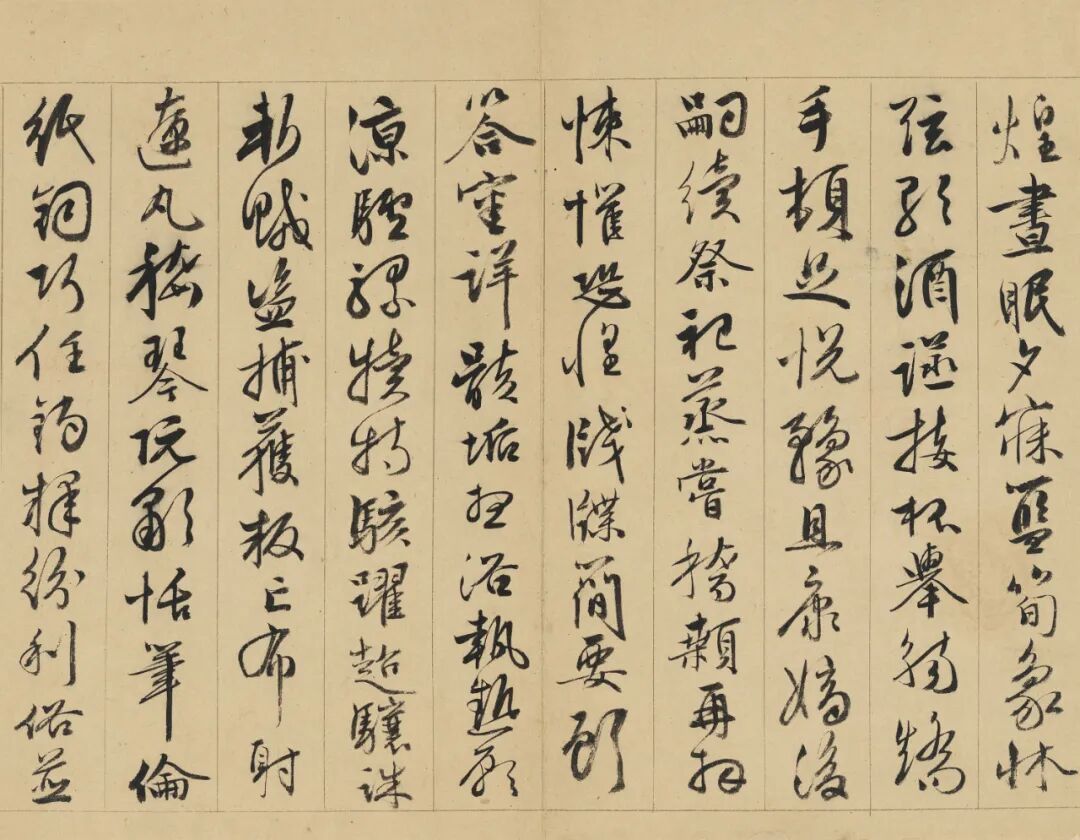 煌晝眠夕寐藍筍象牀
弦歌酒讌接杯舉觴矯
手頓足悅豫且康嫡後
嗣續祭祀蒸嘗稽顙再拜
悚懼恐惶牋牒簡要顧
答審詳骸垢想浴執熱願
涼驢騾犢特駭躍超驤誅
斬賊盜捕獲叛亡布射
遼丸嵇琴阮嘯恬筆倫
紙鈞巧任釣釋紛利俗並